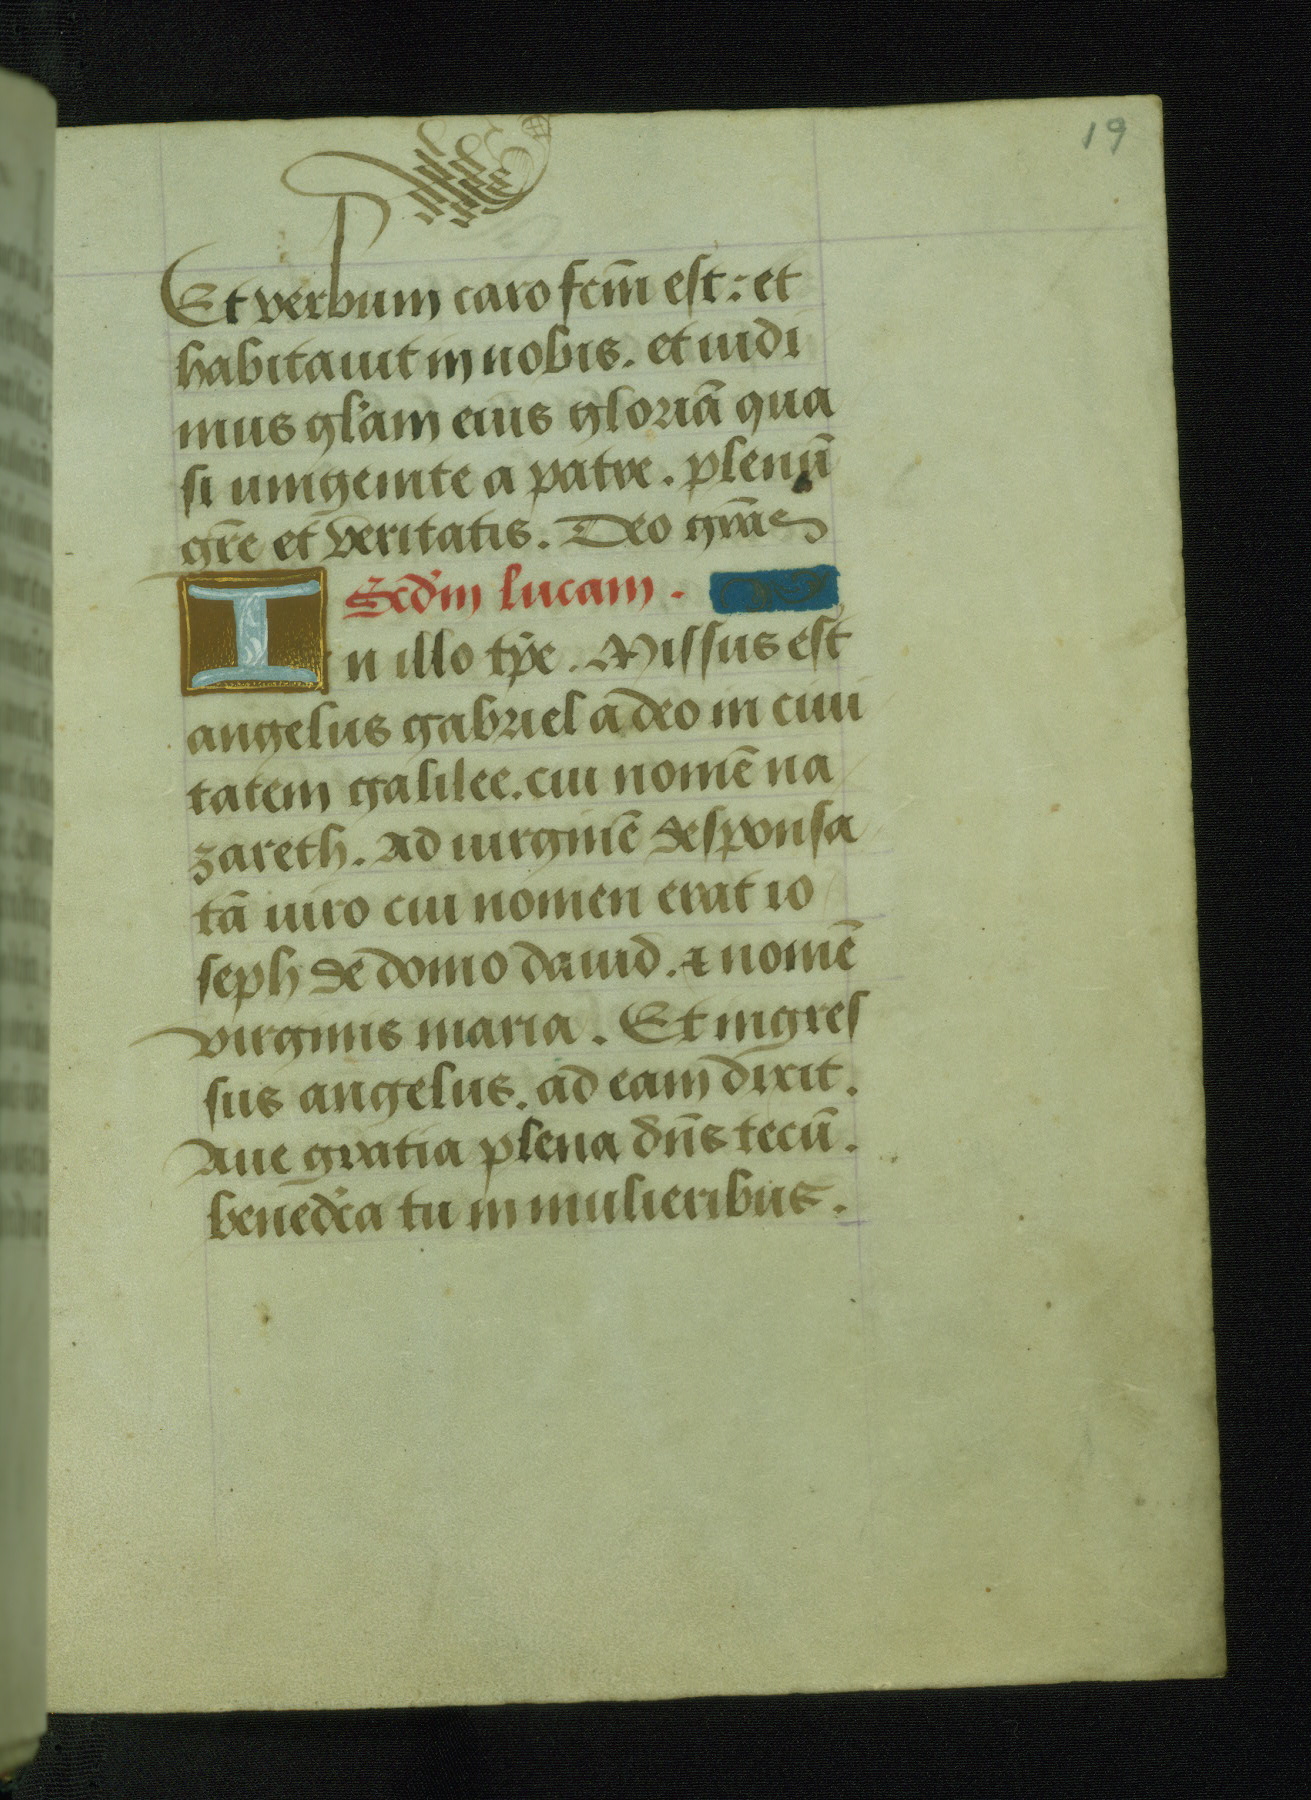 19
Et verbum caro fcm̄ est: et
habitauit in nobis. et uidi
mus gl'am eius gloriā qua
si unigenite a patre. plenū
gr̄e et veritatis. Deo gr̄as
Scd'm lucam.
In illo tp̄e. Missus est
angelus gabriel a deo in ciui
tatem galilee. cui nomē na
zareth. Ad uirginē desponsa
tā uiro cui nomen erat io
seph de domo dauid. ⁊ nomē
virginis maria. Et ingres
sus angelus. ad eam dixit.
Aue gratia plena dn̄s tecū.
bened'ca tu in mulieribus.